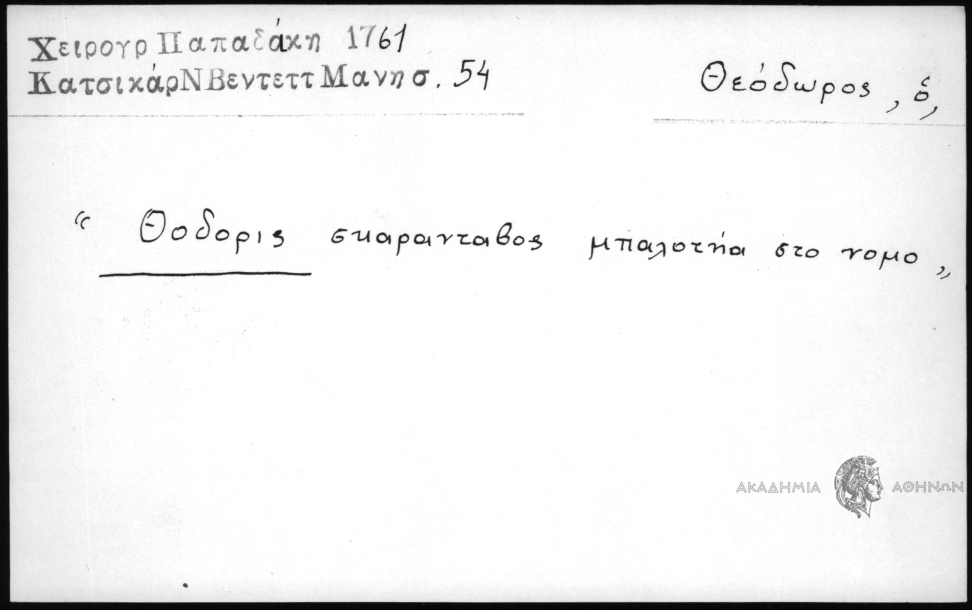 Χειρογρ Παπαδάκη 1761
Κατσικάρ Ν Βεντεττ Μανη σ. 54
Θεόδωρος, ὁ,
“ Θοδορις σκαρανταβος μπαλοτηα στο νομο „
ΑΚΑΔΗΜΙΑ ΑΘΗΝΩΝ